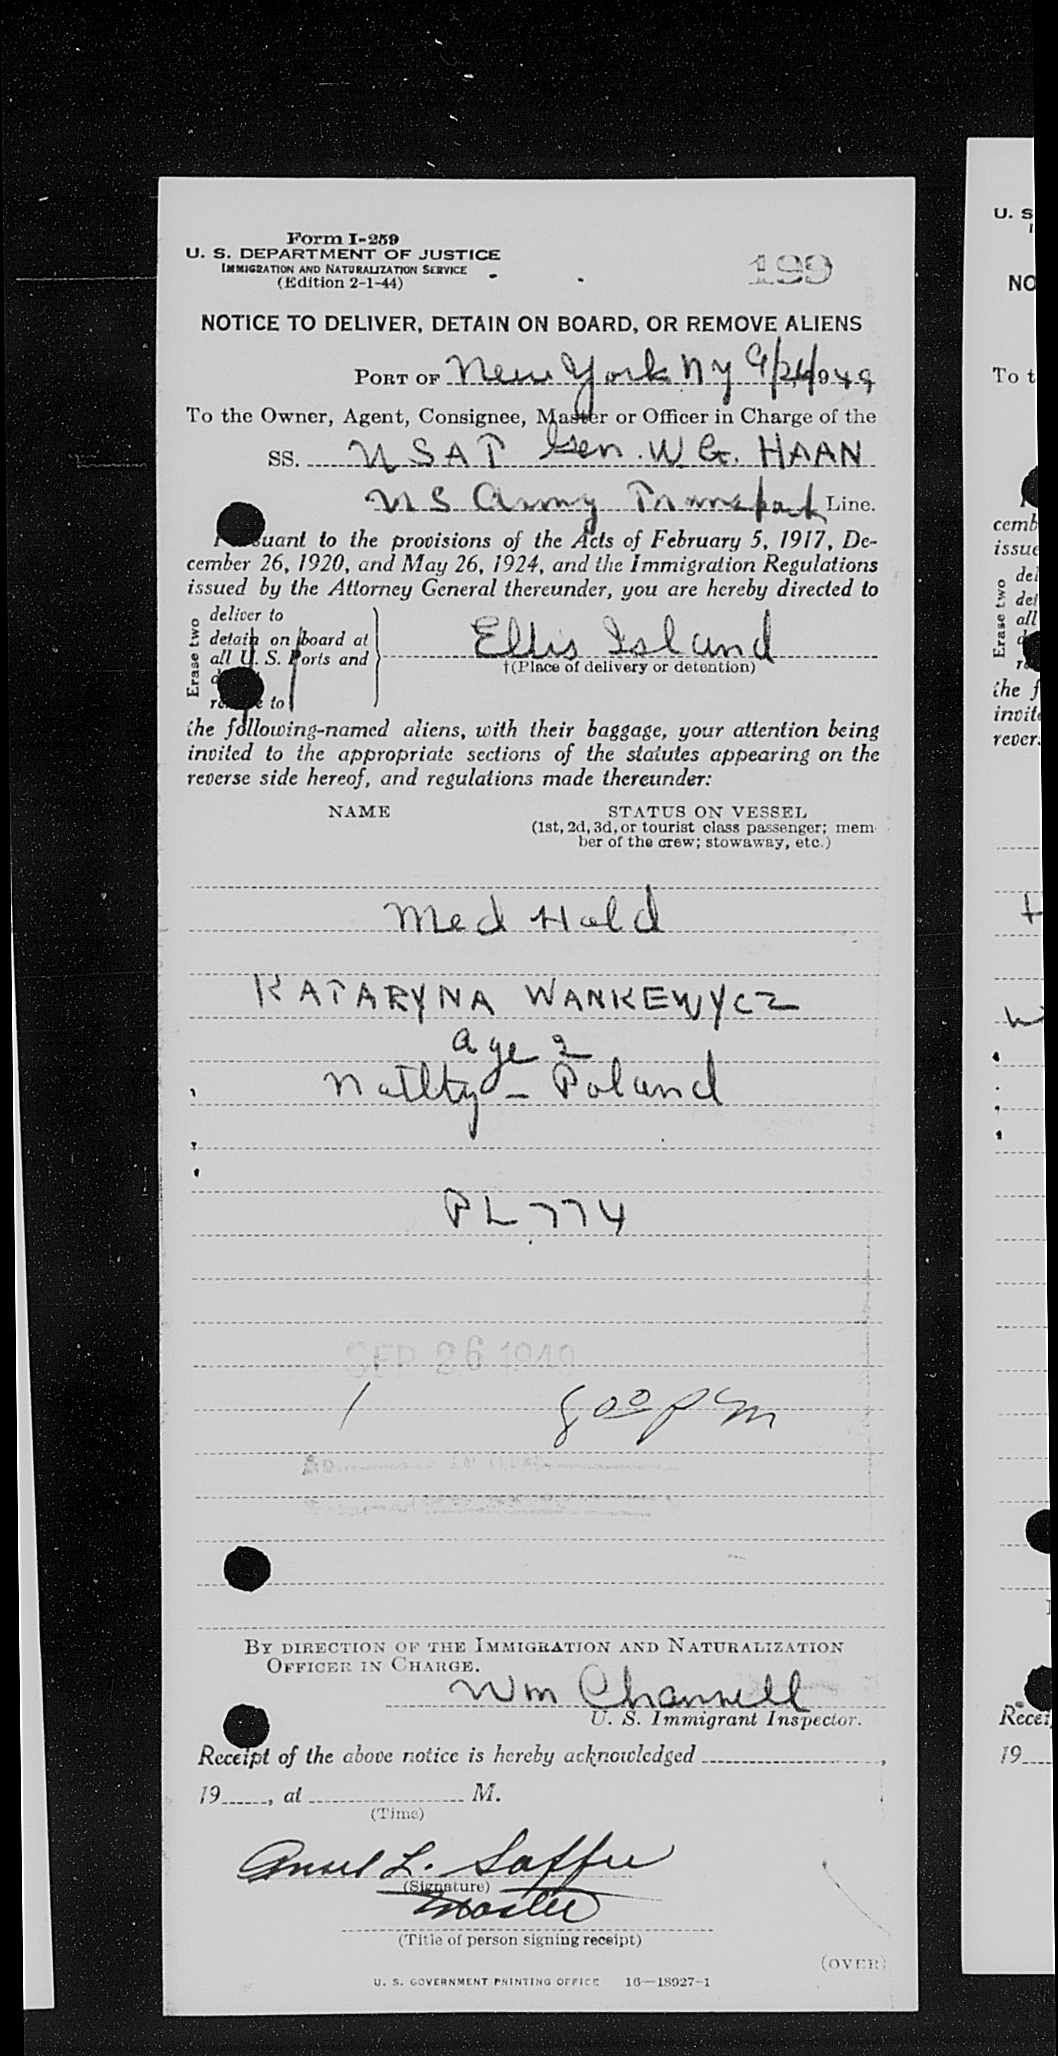 Form I-259
U. S. DEPARTMENT OF JUSTICE
IMMIGRATION AND NATURALIZATION SERVICE
(Edition 2-1-44)
199
NOTICE TO DELIVER, DETAIN ON BOARD, OR REMOVE ALIENS
PORT OF New York NY 9/26/1949
To the Owner, Agent, Consignee, Master or Officer in Charge of the
SS. USAT Gen. W G. HAAN
US Army Transport Line.
uant to the provisions of the Acts of February 5, 1917, De-
cember 26, 1920, and May 26, 1924, and the Immigration Regulations
issued by the Attorney General thereunder, you are hereby directed to
Erase two
deliver to
detain on board at
all U. S. Ports and
to
Ellis Island
†(Place of delivery or detention)
the following-named aliens, with their baggage, your attention being
invited to the appropriate sections of the statutes appearing on the
reverse side hereof, and regulations made thereunder:
NAME STATUS ON VESSEL
(1st, 2d, 3d, or tourist class passenger; mem-
ber of the crew; stowaway, etc.)
Med Hold
KATARYNA WANKEWYCZ
age 2
Natlty - Poland
PL 774
SEP 26 1949
1 800 pm
BY DIRECTION OF THE IMMIGRATION AND NATURALIZATION
OFFICER IN CHARGE.
Wm Channell
U. S. Immigrant Inspector.
Receipt of the above notice is hereby acknowledged ,
19 , at M.
(Time)
Ansel L.
(Signature)
Master
(Title of person signing receipt)
(OVER)
U. S. GOVERNMENT PRINTING OFFICE 16—18927-1
U. S
NO
To t
cemb
issue
Erase two
del
det
all
the f
invit
rever
Recei
19